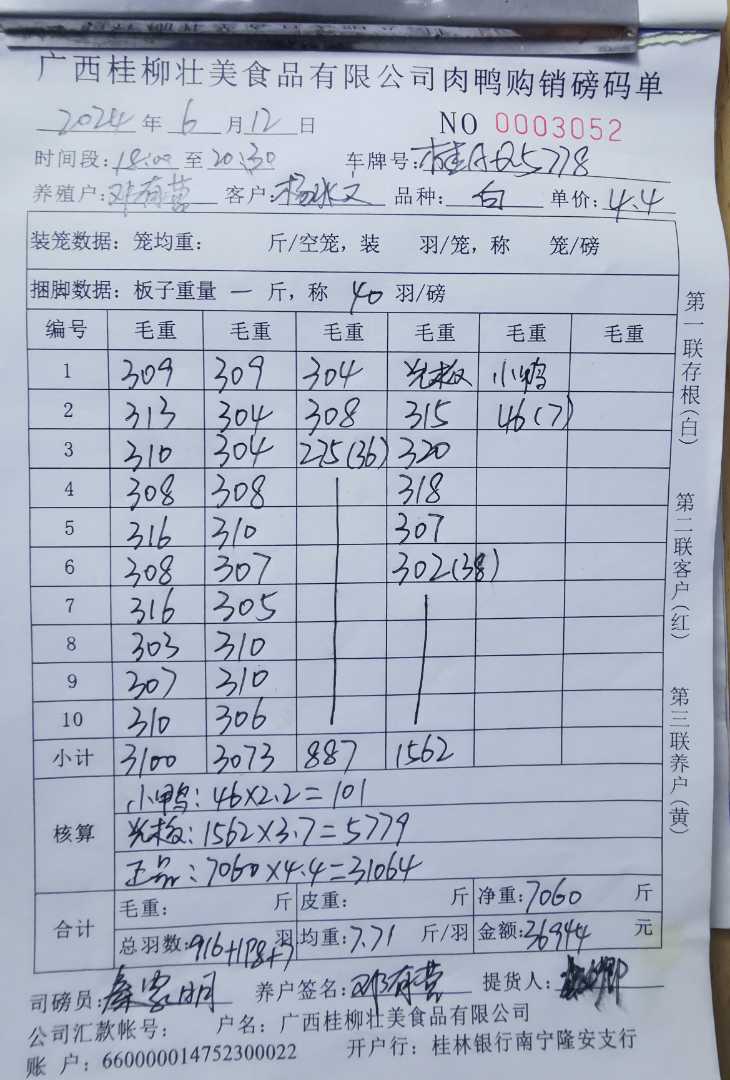 广西桂柳壮美食品有限公司肉鸭购销磅码单
2024 年 6 月 12 日 NO 0003052
时间段: 18:00 至 20:30 车牌号: 桂A·Q5778
养殖户: 邓有营 客户: 杨冰文 品种: 白 单价: 4.4
装笼数据: 笼均重: 斤/空笼, 装 羽/笼, 称 笼/磅
捆脚数据: 板子重量 一 斤, 称 40 羽/磅
编号 毛重 毛重 毛重 毛重 毛重 毛重
1 309 309 304 光板 小鸭
2 313 304 308 315 46(7)
3 310 304 275(36) 320
4 308 308 318
5 316 310 307
6 308 307 302(38)
7 316 305
8 303 310
9 307 310
10 310 306
小计 3100 3073 887 1562
核算
小鸭: 46×2.2=101
光板: 1562×3.7=5779
正品: 7060×4.4=31064
合计
毛重: 斤 皮重: 斤 净重: 7060 斤
总羽数: 916+198+7 羽 均重: 7.71 斤/羽 金额: 36944 元
司磅员: 养户签名: 邓有营 提货人:
公司汇款帐号: 户名: 广西桂柳壮美食品有限公司
账 户: 660000014752300022 开户行: 桂林银行南宁隆安支行
第一联存根(白)
第二联客户(红)
第三联养户(黄)